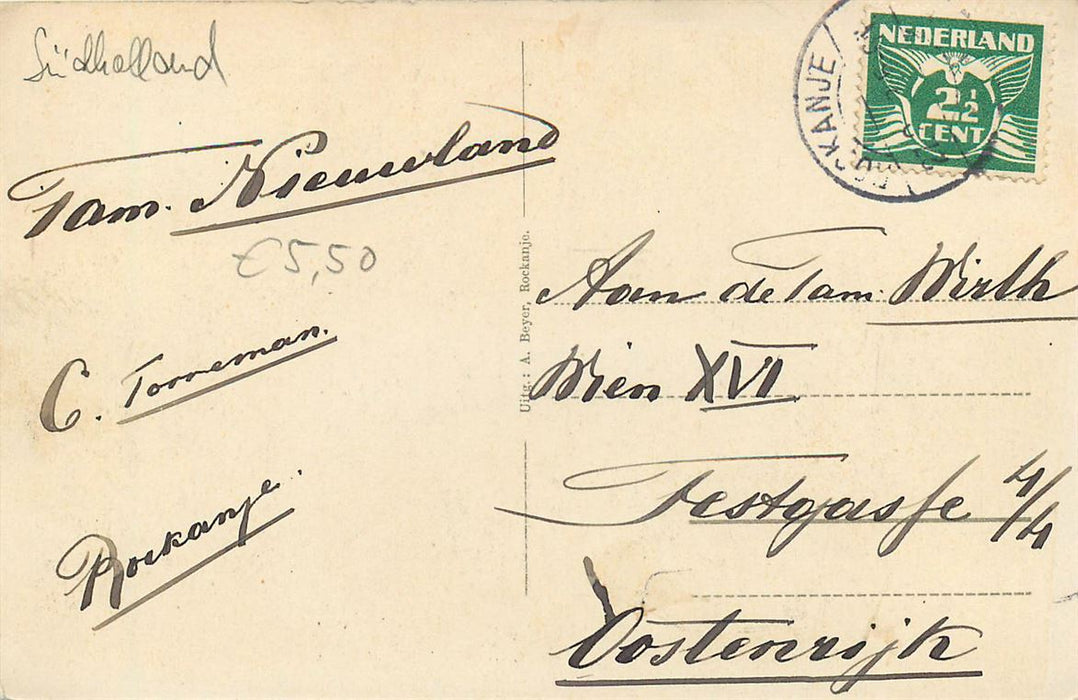 Südholland
Fam. Nieuwland
€5,50
C. Torreman.
Rockanje.
Uitg.: A. Beyer, Rockanje.
ROCKANJE
NEDERLAND
2½
CENT
Aan de Fam. Wirth
Wien XVI
Festgasse 4/4
Oostenrijk